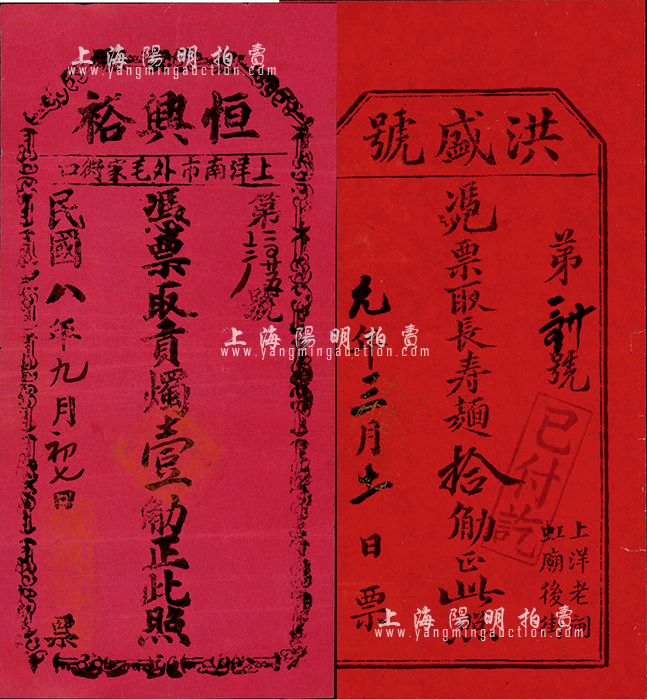 上海陽明拍賣
www.yangmingauction.com
恒興裕
上洋南市外毛家衖口
憑票取貢燭壹觔正此照
民國八年九月初七日
票
洪盛號
第
號
憑票取長寿麵拾觔正此照
元年三月十一日票
已付訖
上洋老
虹廟後
上海陽明拍賣
www.yangmingauction.com
上海陽明拍賣
www.yangmingauction.com